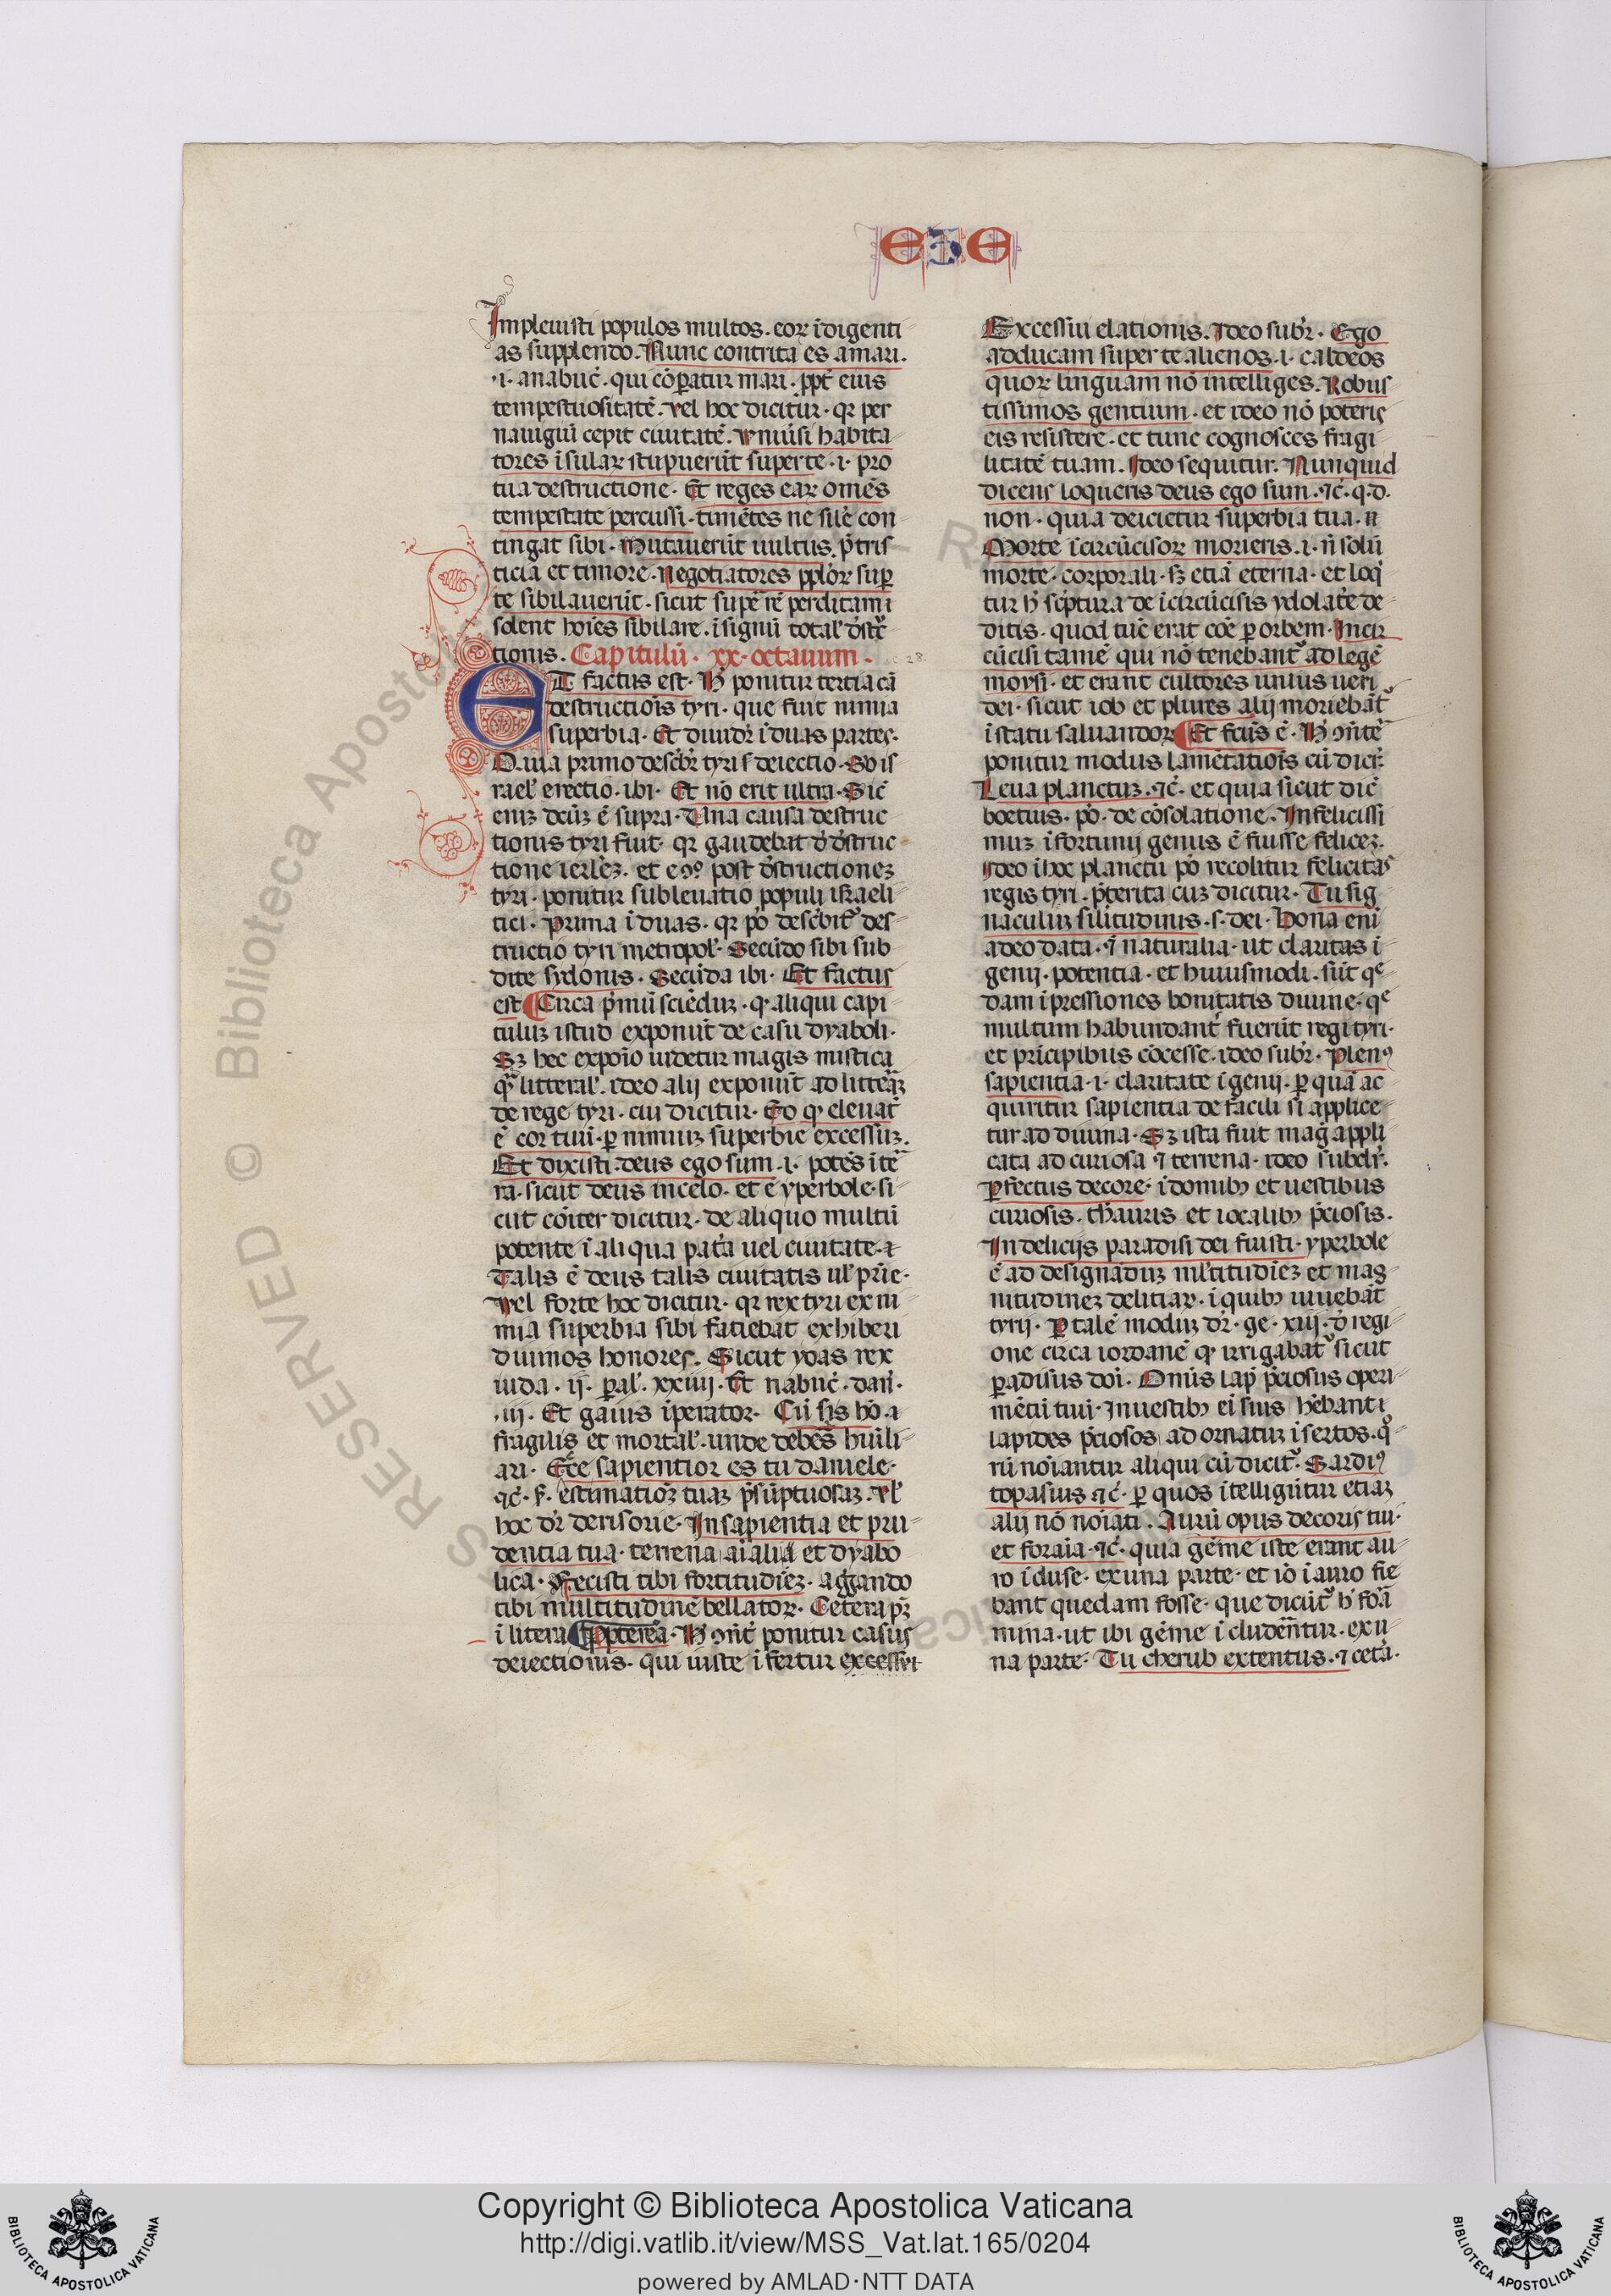 EZE
Impleuisti populos multos. eoꝝ īdigenti
as supplendo. Nunc contrita es a mari.
.i. a nabuc̄. qui cōꝑatur mari. ꝓpt̄ eius
tempestuositatē. Vel hoc dicitur. qꝛ per
nauigiū cepit ciuitatē. Vniūsi habita
tores īsulaꝝ stupuerūt super te .i. pro
tua destructione. Et reges eaꝝ omēs
tempestate percussi. timētes ne sil'e con
tingat sibi. Mutauerūt uultus. p̄ tris
ticia et timore. Negotiatores ppl'oꝝ suꝑ
te sibilauerūt. sicut supe rē perditam
solent hoīes sibilare. ī signū total' d̄struc
tionis. Capitulū. xx. octauum.
28.
ET factus est. H̄ ponitur tertia cā
destructiōis tyri. que fuit nimia
superbia. Et diuidr̄ ī duas partes.
Quia primo describr̄ tyri deiectio. Sō is
rael' erectio. ibi. Et nō erit ultra. Sic̄
eniꝫ dc̄uꝫ ē supra. Una causa destruc
tionis tyri fuit. qꝛ gaudebat d̄ d̄struc
tione ierl'eꝫ. et eꝯꝰ post d̄structioneꝫ
tyri. ponitur subleuatio populi israeli
tici. Prima ī duas. qꝛ pō descbit᷑ des
tructio tyri metropol'. Secūdo sibi sub
dite sydonis. Secūda ibi. Et factus
est ¶Circa p̄mū sciēduꝫ. ꝙ aliqui capi
tuluꝫ istud exponūt de casu dyaboli.
Sꝫ hec expoīo uidetur magis mistica
q̄ litteral'. ideo alij exponūt ad litteꝛaꝫ
de rege tyri. cui dicitur. Eo ꝙ eleuat̄
ē cor tuū. ꝑ nimiuꝫ superbie excessuꝫ.
Et dixisti deus ego sum .i. potēs ī ter
ra. sicut deus in celo. et ē yperbole. si
cut cōiter dicitur. de aliquo multū
potente ī aliqua pat̄a uel ciuitate.
Talis ē deus talis ciuitatis ul' prīe.
Vel forte hoc dicitur. qꝛ rex tyri ex ni
mia superbia sibi faciebat exhiberi
diuinos honores. Sicut yoas rex
iuda. ij. ꝑal'. xxiiij. Et nabuc̄. dan̄.
iij. Et gaīus īperator. Cū sis hō .i.
fragilis et mortal'. unde debes huīli
ari. Ecce sapientior es tu daniele.
⁊c̄. s. estimationē tuaꝫ p̄sūptuosaꝫ. Vl'
hoc dr̄ derisorie. In sapientia et pru
dentia tua. terrena aīalia et dyabo
lica. Fecisti tibi fortitudīeꝫ. aggando
tibi multitudinē bellatoꝝ. Cetera pꝫ
ī litera ¶Propterea. H̄ ꝯn̄t̄ ponitur casus
deiectionis. qui iuste īfertur excessui
Excessiu elationis. Ideo subr̄. Ego
adducam super te alienos .i. caldeos
quoꝝ linguam nō intelliges. Robus
tissimos gentium. et ideo nō poteris
eis resistere. et tunc cognosces fragi
litatē tuam. Ideo sequitur. Nunquid
dicens loqueris deus ego sum. ⁊c̄. q.d.
non. quia deicietur superbia tua. ıı
Morte īcircūcisoꝝ morieris .i. n̄ solū
morte. corporali. sꝫ etiā eterna. et loq
tur h̄ scptura de īcircūcisis ydolatᵉ de
ditis. quod tūc erat cōe ꝑ orbem. Incir
cūcisi tamē qui nō tenebant᷑ ad legē
moysi. et erant cultores unius ueri
dei. sicut iob et plures alij moriebāt᷑
ī statu saluandoꝝ ¶Et fcūs ē. H̄ ꝯn̄ter
ponitur modus lamētatiōis cū dicr̄.
Leua planctuꝫ. ⁊c̄. et quia sicut dic̄
boetius. pō. de cōsolatione. Infelicissi
muꝫ īfortunij genus ē fuisse feliceꝫ.
Ideo ī hoc planctu pō recolitur felicitas
regis tyri. p̄terita cuꝫ dicitur. Tu sig
naculuꝫ silitudinis .s. dei. Dona enī
a deo data. ⁊ naturalia. ut claritas ī
genij. potentia. et huiusmodi. sūt qᵉ
dam īpressiones bonitatis diuine. qᵉ
multum habundant̄ fuerūt regi tyri.
et prīcipibus cōcesse. ideo subr̄. Plenꝰ
sapientia .i. claritate īgenij. ꝑ quā ac
quiritur sapientia de facili si applice
tur ad diuina. Sꝫ ista fuit maḡ appli
cata ad curiosa ⁊ terrena. ideo subdr̄.
Perfectus decore. ī domibꝫ et uestibus
curiosis. thauris et iocalibꝫ p̄ciosis.
In delicijs paradisi dei fuisti. yperbole
ē ad designāduꝫ mltitudīeꝫ et mag
nitudineꝫ delitiaꝝ. ī quibꝫ uiuebāt
tyrij. Per talē moduꝫ dr̄. ge. xiij. d̄ regi
one circa iordanē ꝙ irrigabat᷑ sicut
paradisus dn̄i. Omīs lap̄ p̄ciosus operi
mētū tuū. In uestibꝫ ei suis hēbant᷑
lapides p̄ciosos ad ornatuꝫ īsertos. q̄
rū noīantur aliqui cū dicit᷑. Sardiꝰ
topasius ⁊c̄. ꝑ quos ītelligūtur etiaꝫ
alij nō noīati. Aurū opus decoris tui.
et foraīa. ⁊c̄. quia gēme iste erant au
ro īcluse. ex una parte. et iō ī auro fie
bant quedam fosse. que dicūt᷑ h̄ forā
mina. ut ibi gēme īcludēntur. ex u
na parte. Tu cherub extentus. ⁊ cetā.
© Biblioteca Apostolica Vaticana
Copyright © Biblioteca Apostolica Vaticana
http://digi.vatlib.it/view/MSS_Vat.lat.165/0204
powered by AMLAD·NTT DATA
BIBLIOTECA APOSTOLICA VATICANA
BIBLIOTECA APOSTOLICA VATICANA